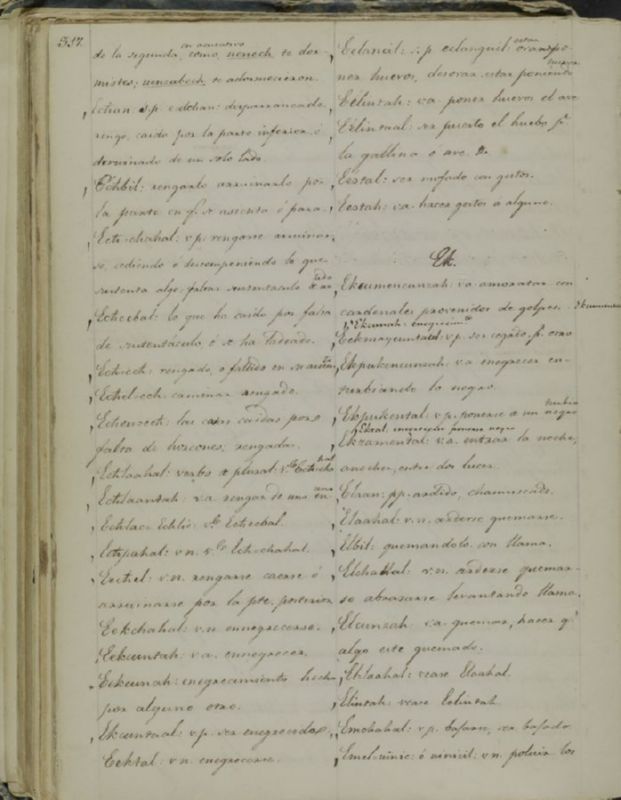 317.
en acusativo
de la segunda, como, nenech te dor-
mistes;
te adormecieron.
Echan s.p. desparrancado
rengo, caido por la parte inferior, é
derruinado de un solo lado.
Echbil: rengarlo arruinarlo por
la parte en q.e se asienta ó para.
Ech-chahal: v.p. rengarse arruinar-
se, cediendo ó descomponiendo lo que
sustenta algo, faltar sustentáculo
lado
Echecbal: lo que ha caido por falta
de sustentáculo, é se ha ladeado.
Echech: rengado, ó fallido en
Echel-ech caminar rengado.
las casas caidas por
falta de horcones; rengadas.
Echlaahal: verbo plural:
Echlaantah: v.a. rengar de uno en
Echlac Echlic:
v.n. Ech-chahal.
Eechel: v.n. rengarse caerse ó
arruinarse por la pte. posterior
Eekchahal: v.n. ennegrecerse.
Eekcuntah: v.a. ennegrecer.
Eekcunah: enegrecimiento hech
por alguno otro.
Ekcuntaal: v.p. ser enegrecido
Eektal: v.n. enegrecerse.
Eelancil: s.p. eelanquil: estar
ner huevos, desovar, estar poniendo
huevos
Eelintah: v.a. poner huevos el ave
Eelintaal: ser puesto el huebo p.r
la gallina ó ave.
Eestal: ser mofado con gestos.
Eestah: v.a. hacer gestos a alguno.
Ek.
Ekcumencunzah: v.a. amoratar con
cardenales provenidos de golpes.
Ekcunah: enegrecim.to
Eekmaycuntaal: v.p. ser cegado p.r otro
Ekpukencunzah: v.a. enegrecer en-
turbiando lo negro.
Ekpukental: v.p. ponerse a un negro
turbio
Ektal: ponerse negro
Ekzamental: v.a. entrar la noche,
anochecer, entre dos luces.
Elaan: pp. ardido, chamuscado.
Elaahal: v.n. arderse quemarse.
Elbil: quemandolo con llama.
Elchahal: v.n. arderse quemar-
se abrasarse levantando llama.
Elcunzah: v.a. quemar, hacer q.e
algo esté quemado.
Ellaahal: vease Elaahal.
Elintah: vease Eelintah
Emchahal: v.p. bajarse, ser bajado
v.n. pulir los